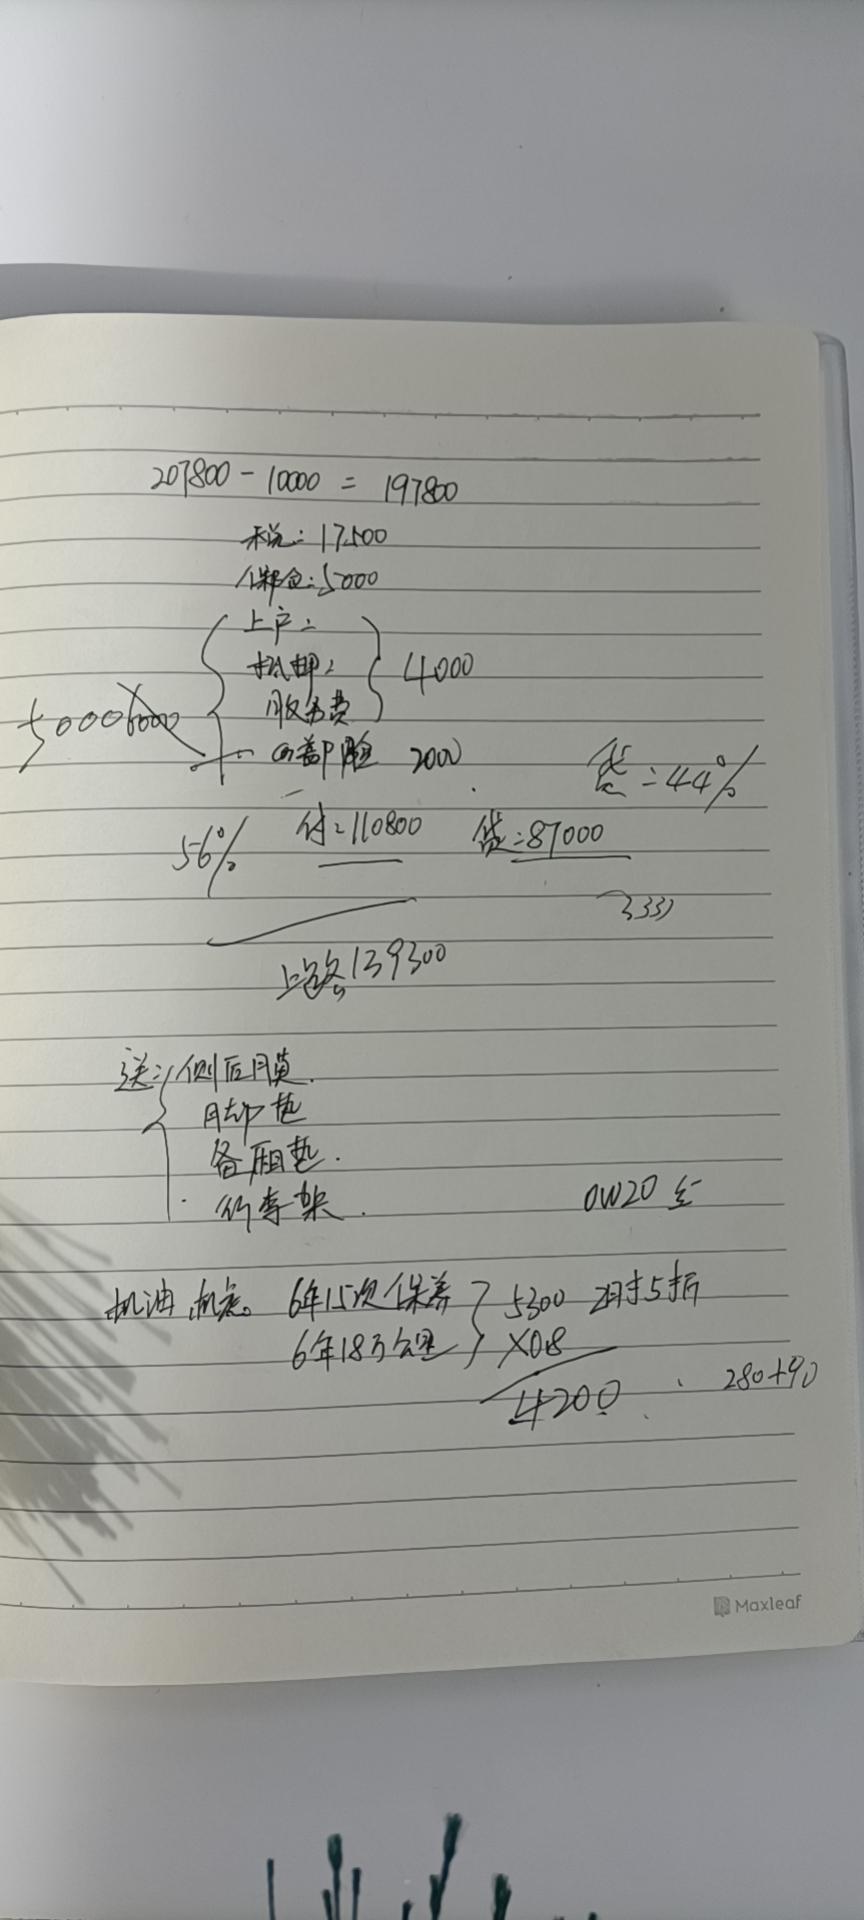 207800-10000=197800
税:17500
保险:5000
上户:
抵押:
服务费
4000
5000 6000
盗抢 2000
贷=44%
56%
付=110800 贷=87000
333)
上路139300
送:侧后膜.
脚垫
备厢垫.
行李架.
0W20 全
机油 机滤。 6年15次保养
6年18万公里
5300 随时5折
X0.8
4200
280+90
Maxleaf